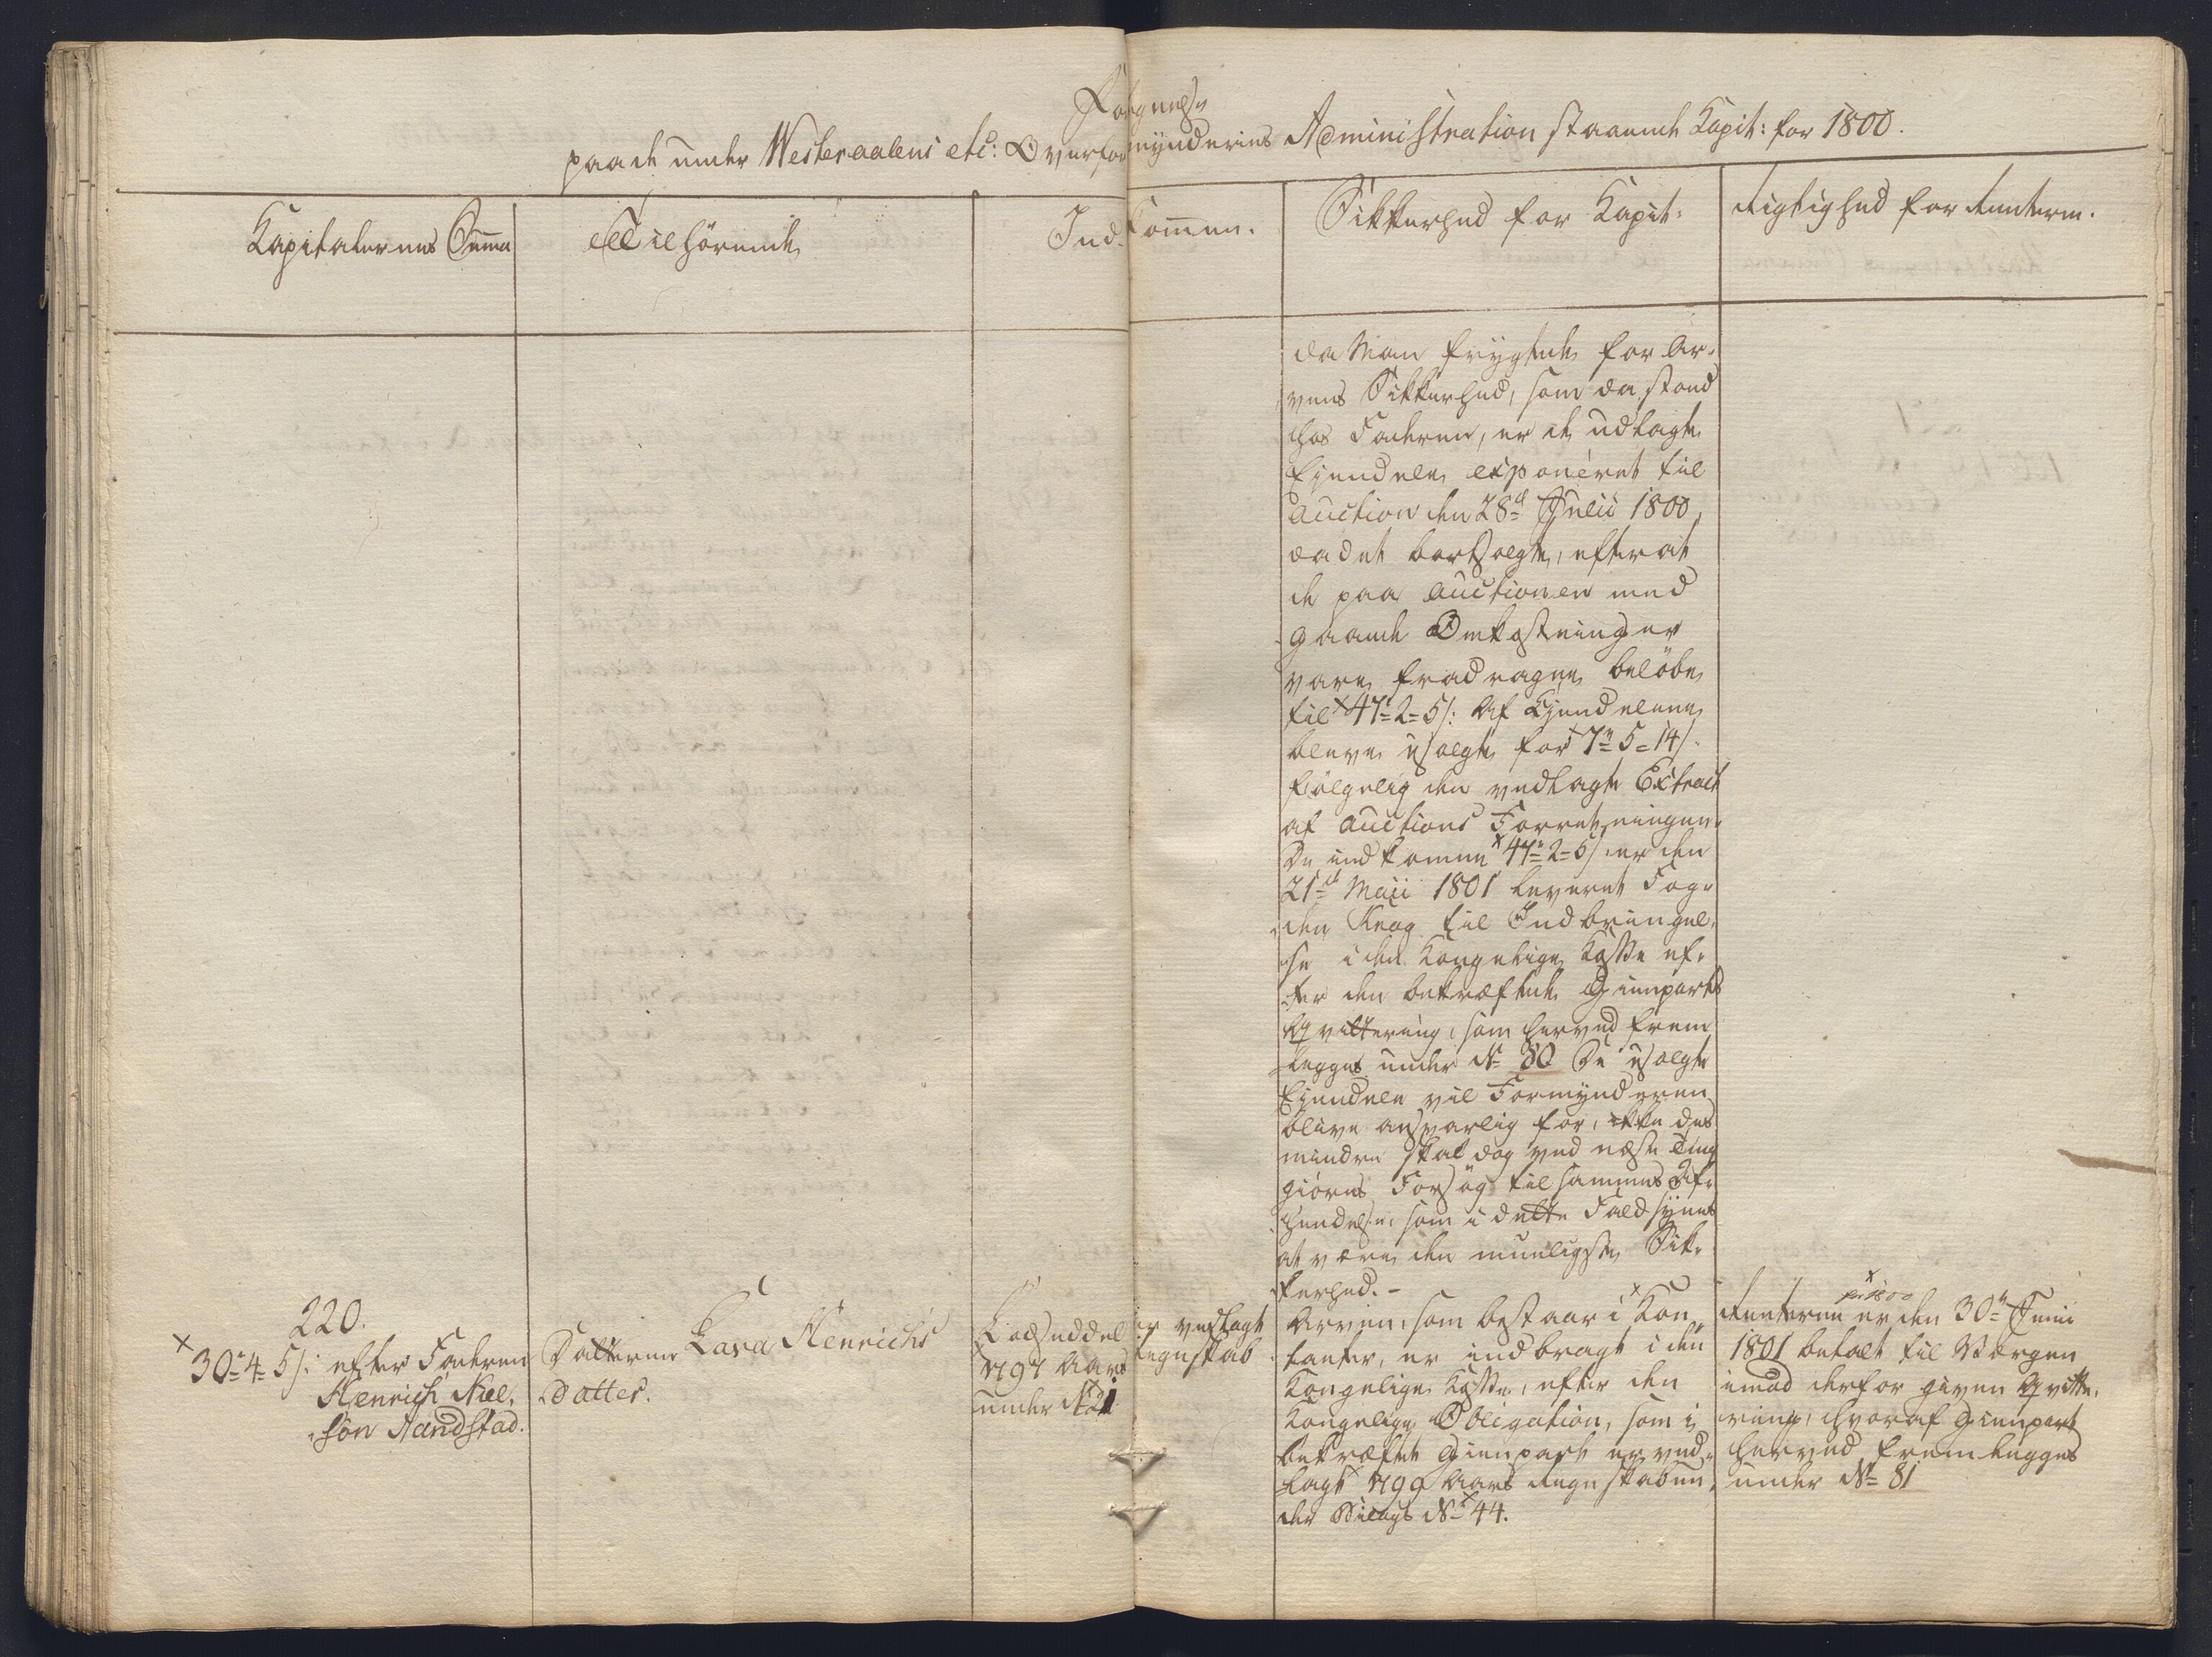 Fortegnelse
paa de under Westeraalens etc: Overformynderies Administration staaende Kapit: for 1800.
Kapitalernes Suma
Tilhörende
Indkommen.
Sikkerhed for Kapit:
Rigtighed for Renterne.
da Man frygtede for Ar-
vens Sikkerhed, som da stoed
hos Faderen, er de udlagte
Ejendele exponeret til
Auction den 28de Julii 1800,
da det bortsolgte, efterat
de paa Auctionen med
gaaende Omkostninger
vare fradragne beløbe
til 47-2-5 s: Af Ejendelene
bleve usolgte for 7-5-14 s.
følgelig den vedlagte Extract
af Auctions Forretningen.
De indkomne 47-2-5 s er den
21de Maii 1801 leveret Fog-
den Krog til Indbringel-
se i den Kongelige Kasse ef-
ter den bekræftede Gienparts
Qvittering, som herved frem
legges under No 80 De usolgte
Ejendele vil Formynderen
blive ansvarlig for, ikke des
mindre skal dog ved næste Ting
giøres Forsøg til sammes Af-
hendelse, som i dette Fald synes
at være den mueligste Sik-
kerhed.-
220.
30-4-5 s: efter Faderen
Henrich Niel-
sön Sandstad.
Datteren Lava Henrichs
Datter.
Lodseddel er vedlagt
1797 Aars Regnskab
under No 21
Arven, som bestaar i Kon-
tanter, er indbragt i den
Kongelige Kasse, efter den
Kongelige Obligation, som i
bekræftet Gienpart er ved-
lagt 1799 Aars Regnskab un-
der Bilags No 44.
pr 1800
Renterne er den 30te Junii
1801 betalt til Værgen
imod derfor given Qvitte-
ring, hvoraf Gienpart
herved fremlegges
under No 81